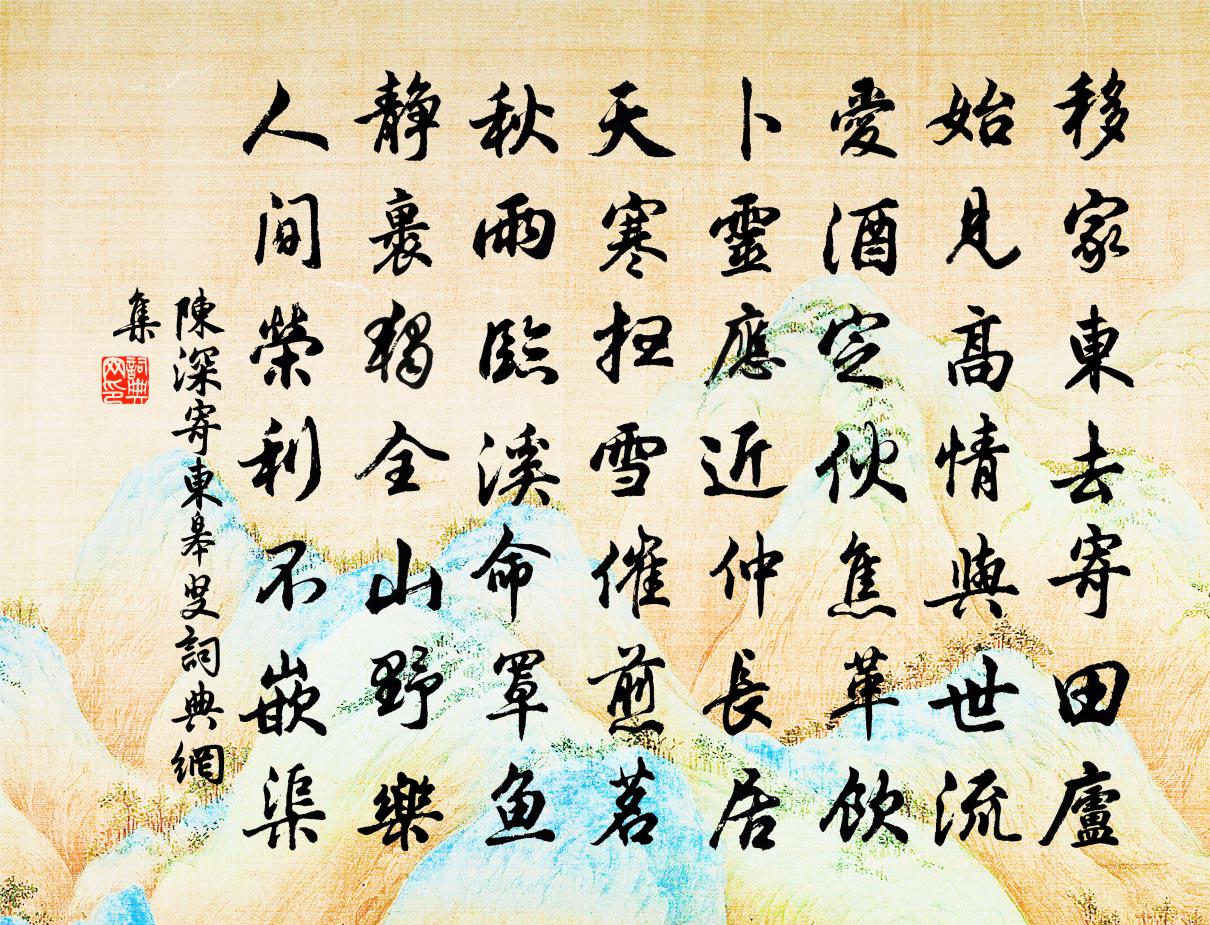 移家東去寄田廬
始見高情與世流
愛酒定伙焦革飲
卜靈應近仲長居
天寒扫雪催煎茗
秋雨臨溪命罩魚
靜裏獨全山野樂
人間榮利不嵌渠
陳深寄東皋叟詞典網
集
詞典
网印